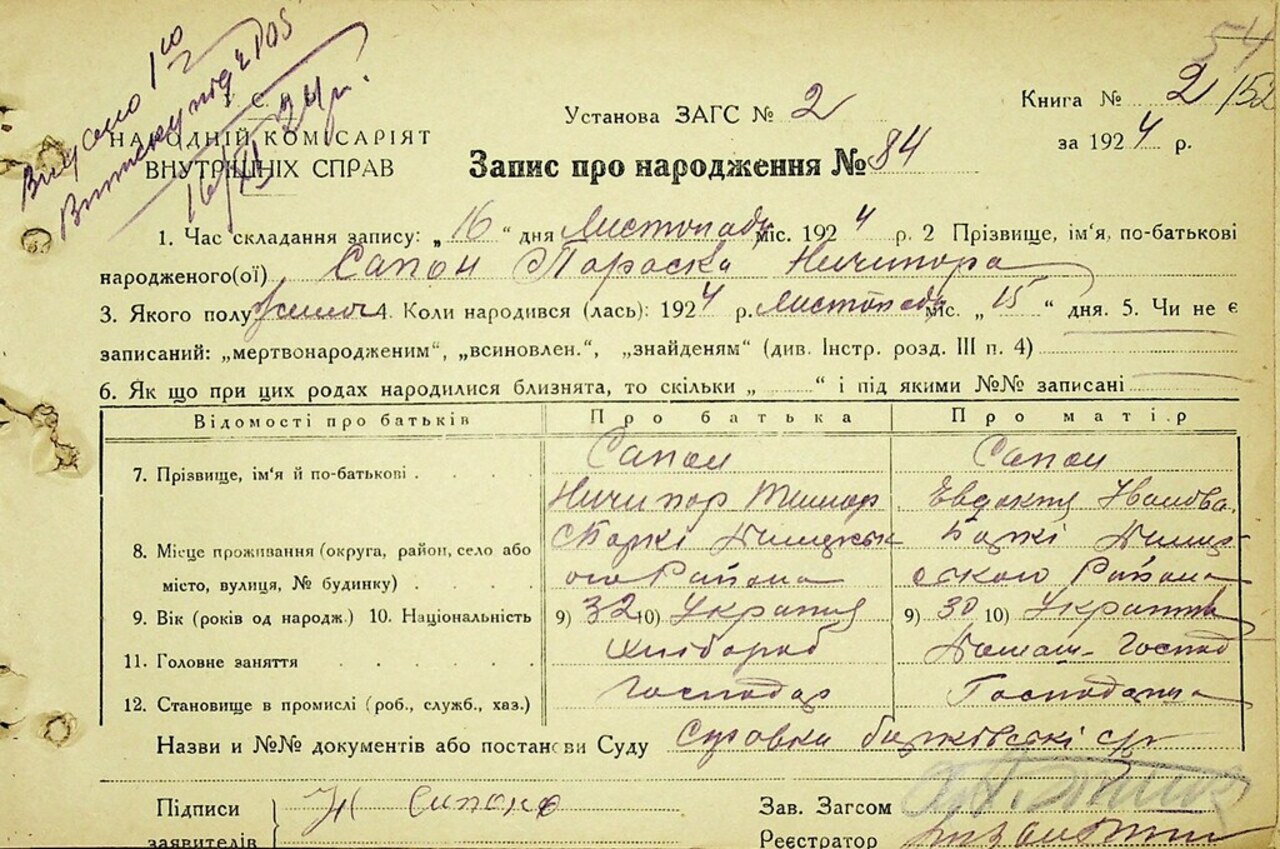 54
Видано 1
16/XII 24 р.
У. С. Р. Р.
НАРОДНІЙ КОМІСАРІЯТ
ВНУТРІШНІХ СПРАВ
Установа ЗАГС № 2
Книга № 2/152
за 1924 р.
Запис про народження № 84
1. Час складання запису: „16“ дня Листопада міс. 1924 р. 2 Прізвище, ім‘я, по-батькові
народженого(ої) Сапон Параска Ничипора
3. Якого полу жіноч 4. Коли народився (лась): 1924 р. Листопада міс. „15“ дня. 5. Чи не є
записаний: „мертвонародженим“, „всиновлен.“, „знайденям“ (див. Інстр. розд. III п. 4)
6. Як що при цих родах народилися близнята, то скільки „ “ і під якими №№ записані
Відомості про батьків Про батька Про матір
7. Прізвище, ім‘я й по-батькові Сапон Сапон
Ничипор Тимоф Евдокия Иванова
8. Місце проживання (округа, район, село або
місто, вулиця, № будинку) ого Района ского Района
9. Вік (років од народж.) 10. Національність 9) 32 10) Украпня 9) 30 10) Украпнка
11. Головне заняття Хлібороб Домаш- Господ
12. Становище в промислі (роб., служб., хаз.) Господар Господарка
Назви и №№ документів або постанови Суду Справка с/р
Підписи
заявителів Н Сапона
Зав. Загсом
Реєстратор